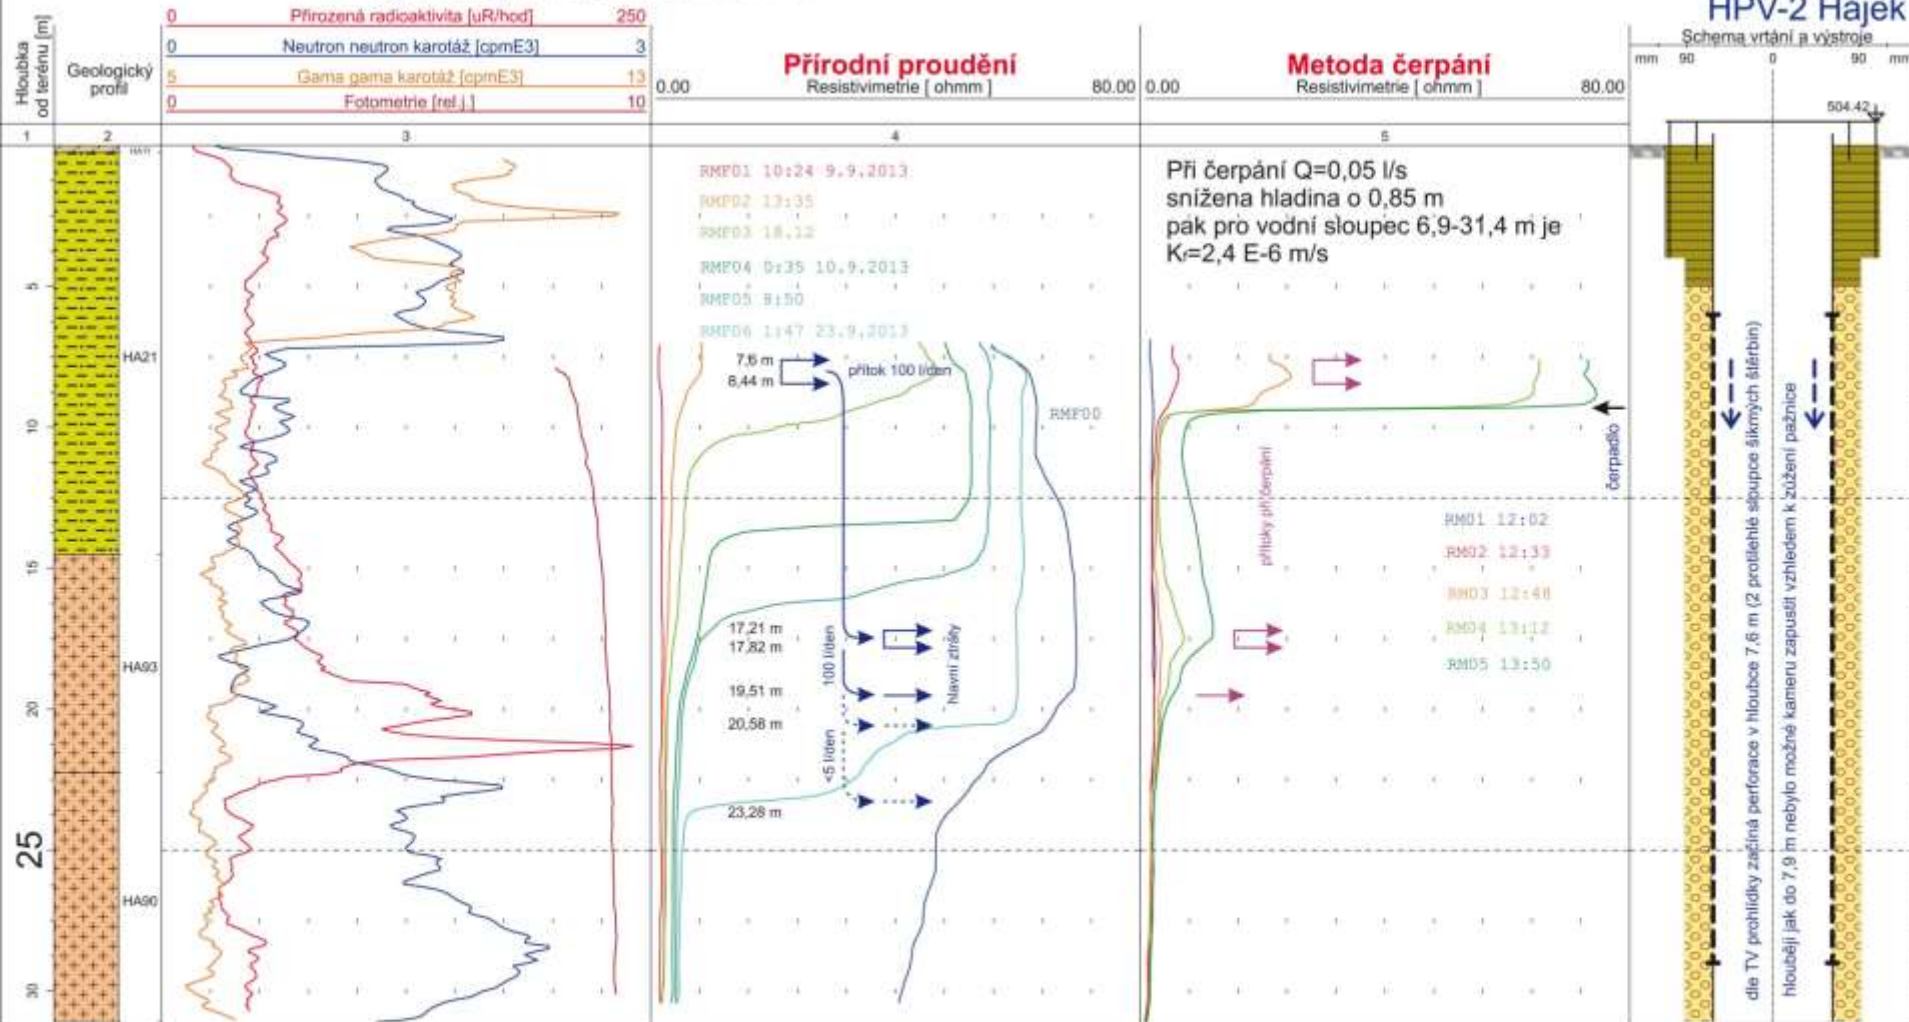 HPV-2 Hájek
Schema vrtání a výstroje
mm 90 0 90 mm
504.42
Hloubka
od terénu [m]
Geologický
profil
0 Přirozená radioaktivita [uR/hod] 250
0 Neutron neutron karotáž [cpmE3] 3
5 Gama gama karotáž [cpmE3] 13
0 Fotometrie [rel.j.] 10
Přírodní proudění
0.00 Resistivimetrie [ ohmm ] 80.00
Metoda čerpání
0.00 Resistivimetrie [ ohmm ] 80.00
1 2 3 4 5
5
10
15
20
25
30
HA21
HA93
HA90
RMF01 10:24 9.9.2013
RMF02 13:35
RMF03 18.12
RMF04 0:35 10.9.2013
RMF05 9:50
RMF06 1:47 23.9.2013
7,6 m
8,44 m
přítok 100 l/den
RMF00
17,21 m
17,82 m
19,51 m
20,58 m
23,28 m
100 l/den
<5 l/den
hlavní ztráty
Při čerpání Q=0,05 l/s
snížena hladina o 0,85 m
pak pro vodní sloupec 6,9-31,4 m je
Kf=2,4 E-6 m/s
čerpadlo
přítoky při čerpání
RM01 12:02
RM02 12:33
RM03 12:48
RM04 13:12
RM05 13:50
dle TV prohlídky začíná perforace v hloubce 7,6 m (2 protilehlé sloupce šikmých štěrbin)
hlouběji jak do 7,9 m nebylo možné kameru zapustit vzhledem k zúžení pažnice